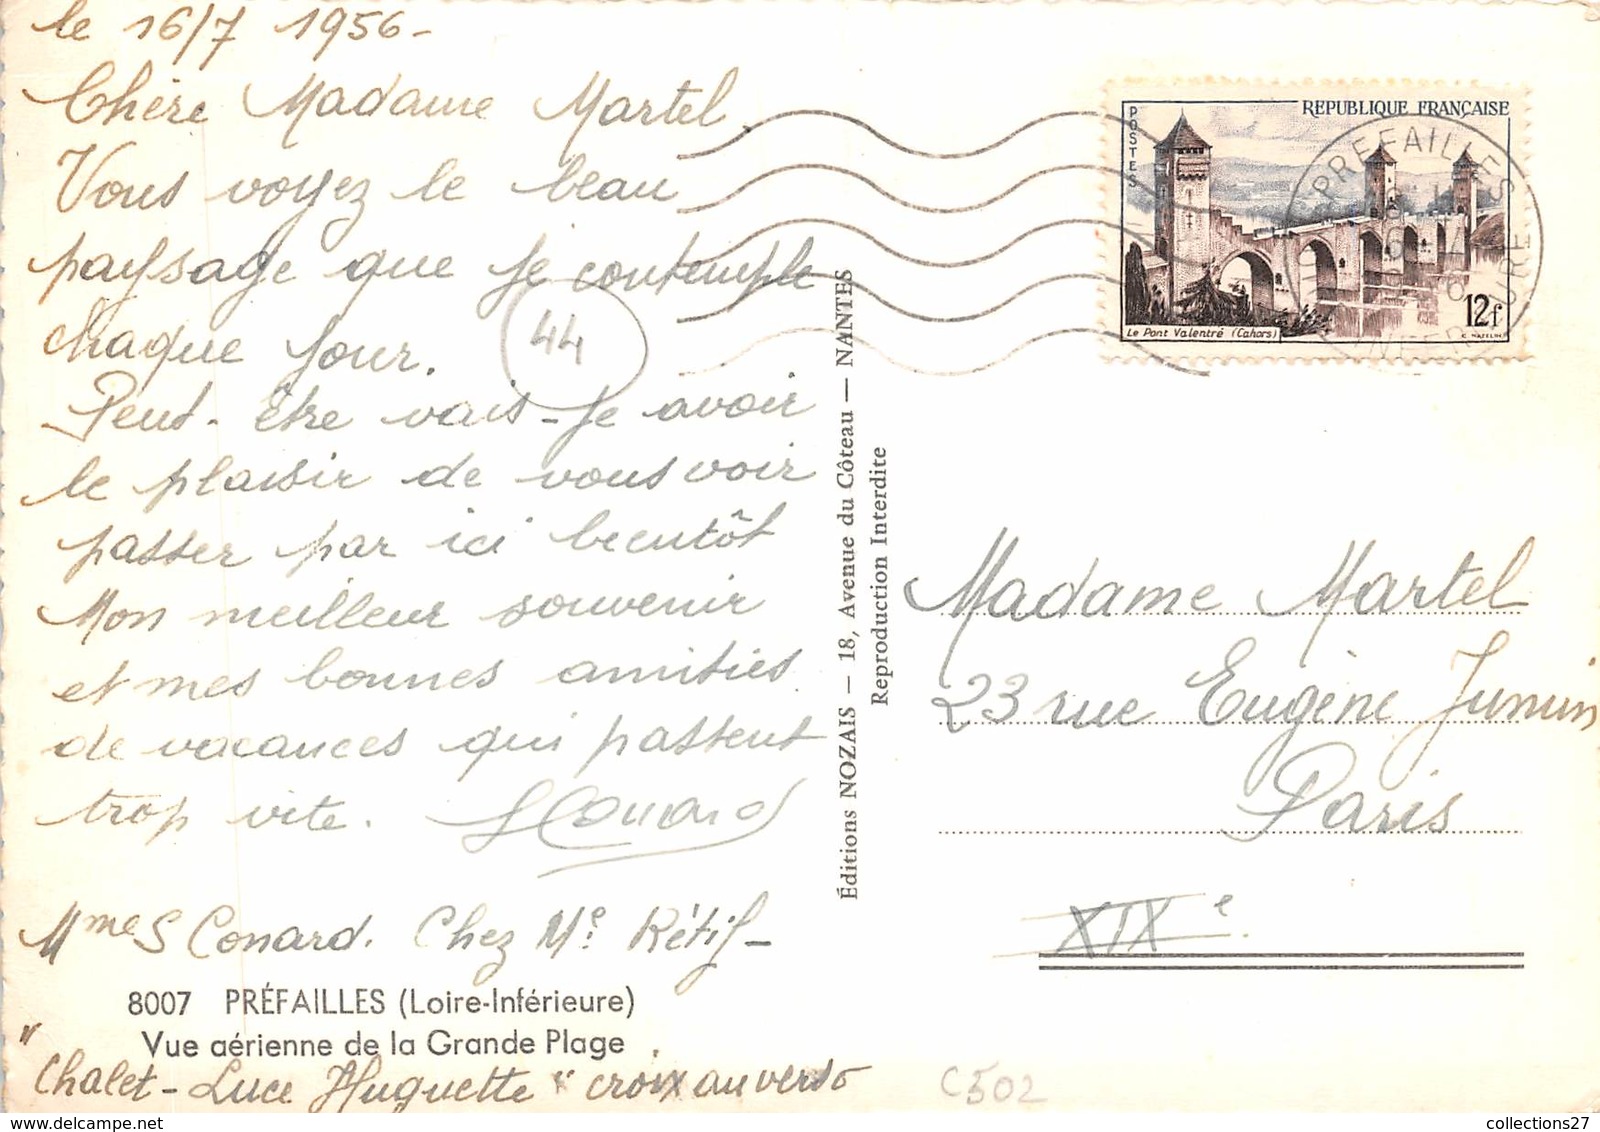 le 16/7 1956 -
Chère Madame Martel
Vous voyez le beau
paysage que je contemple
chaque jour.
Peut-être vais-je avoir
le plaisir de vous voir
passer par ici bientôt
Mon meilleur souvenir
et mes bonnes amitiés
de vacances qui passent
trop vite. SConard
Mme S Conard. Chez Me Rétif -
8007 PRÉFAILLES (Loire-Inférieure)
Vue aérienne de la Grande Plage
"Chalet - Luce Huguette" croix au verso
44
Éditions NOZAIS — 18, Avenue du Côteau — NANTES
Reproduction Interdite
POSTES
REPUBLIQUE FRANÇAISE
12f
Le Pont Valentré (Cahors)
PREFAILLES
Madame Martel
23 rue Eugène Jumin
Paris
XIXe.
C502
collections27